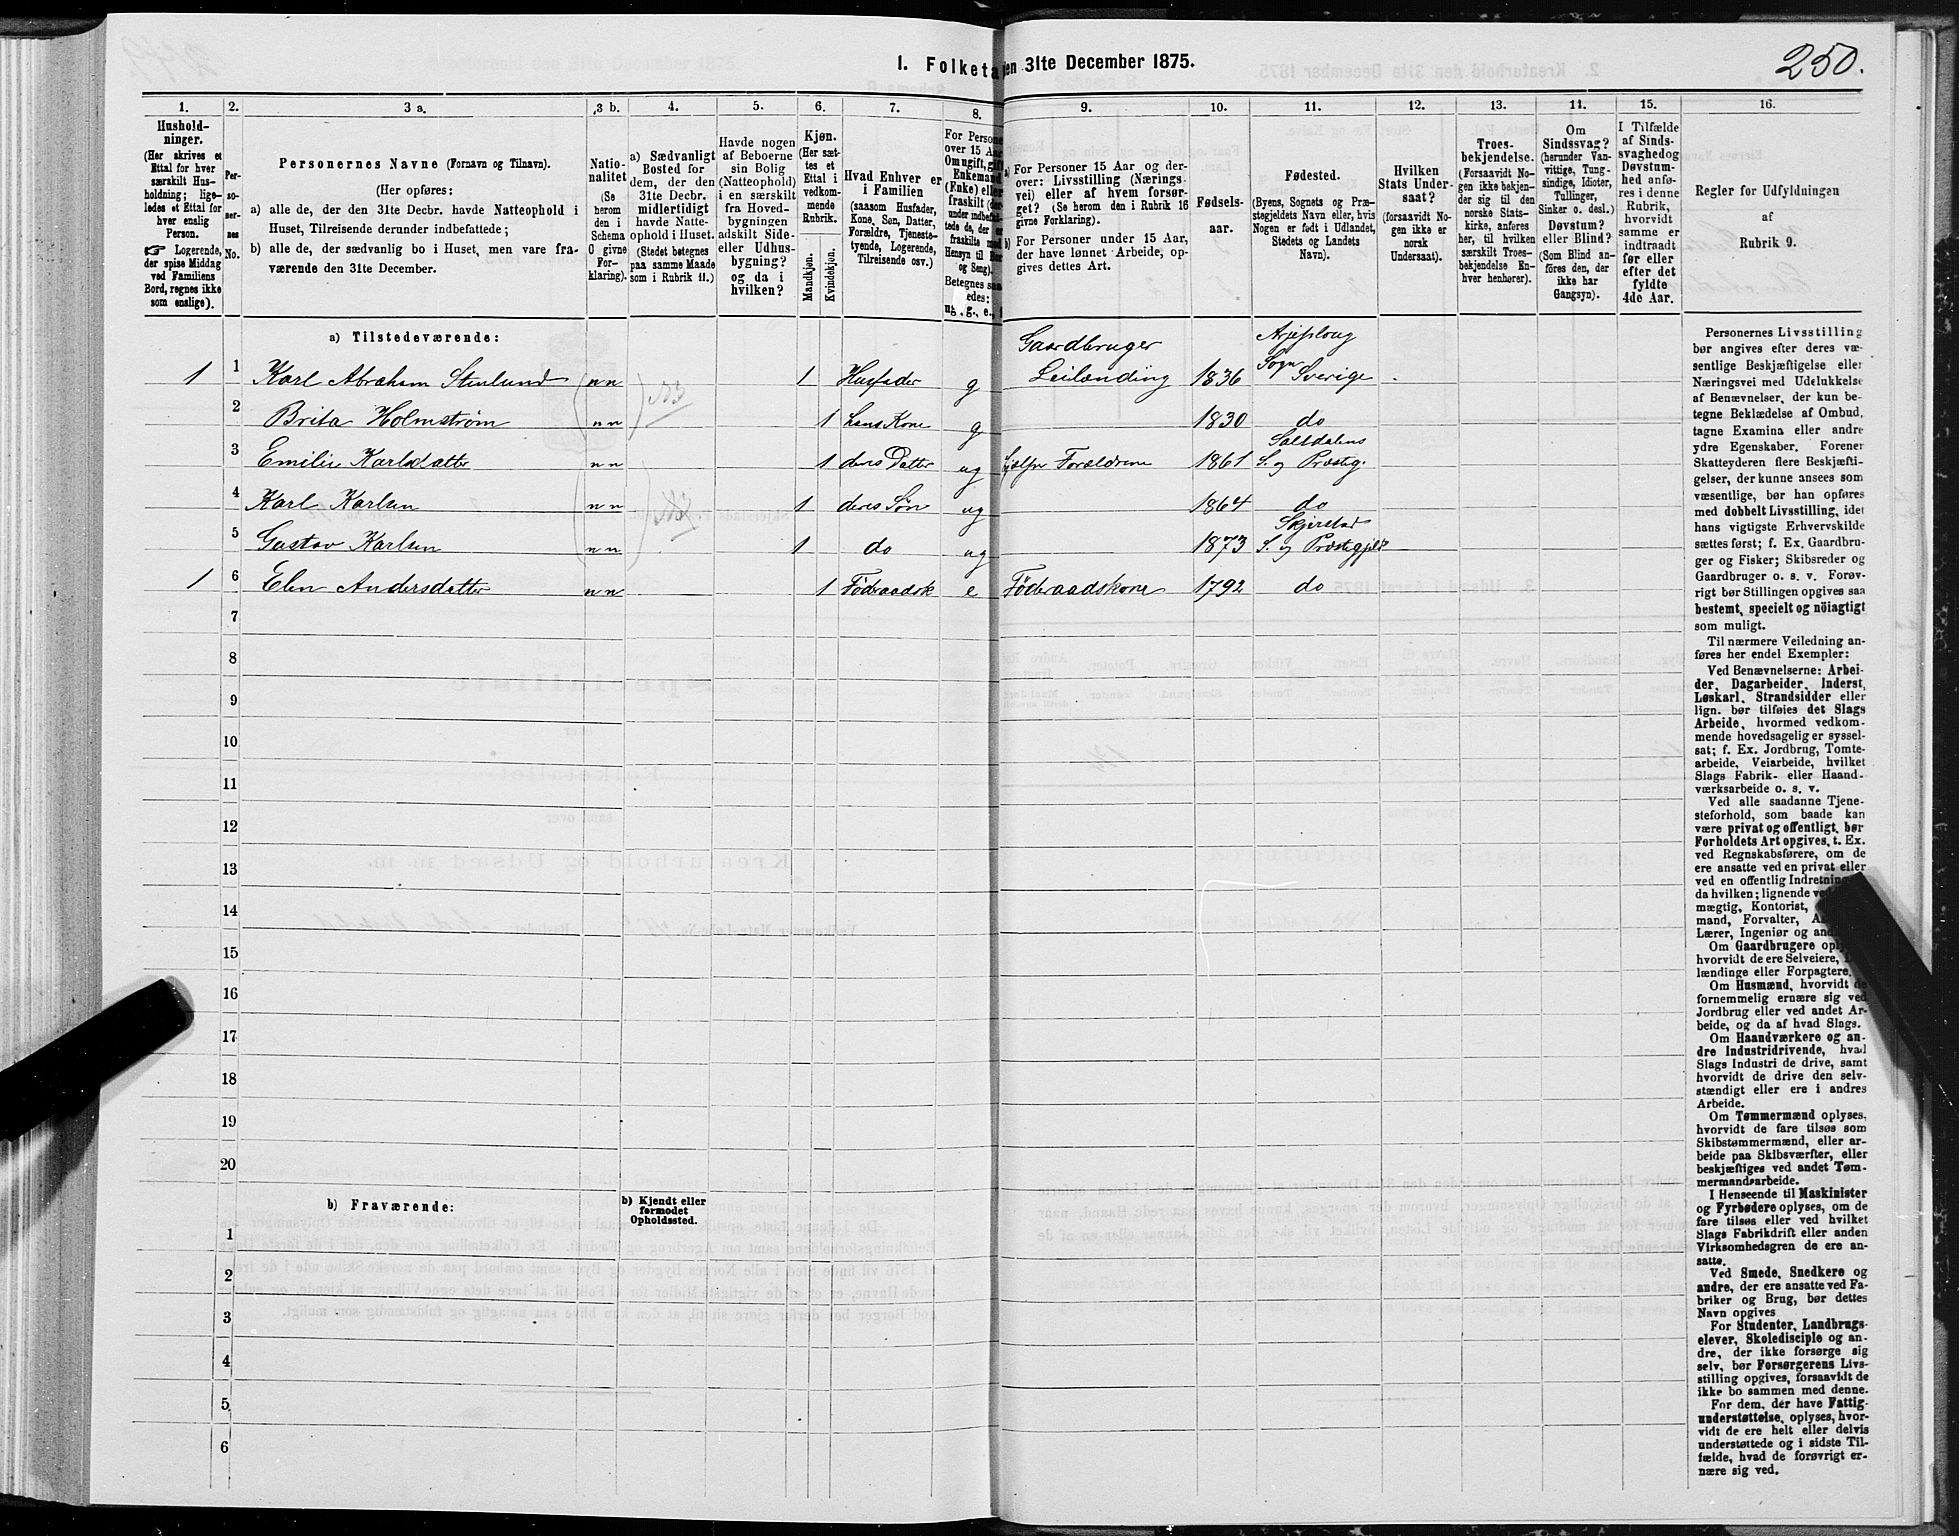 250.
1. Folketa en 31te December 1875.
1. 2. 3 a. 3 b. 4. 5. 6. 7. 8. 9. 10. 11. 12. 13. 14. 15. 16.
Hushold-
ninger.
(Her skrives et
Ettal for hver
særskilt Hus-
holdning; lige-
ledes et Ettal for
hver enslig
Person.
Logerende,
der spise Middag
ved Familiens
Bord, regnes ikke
som enslige).
Per-
so-
ner-
nes
No.
Personernes Navne (Fornavn og Tilnavn).
(Her opføres:
a) alle de, der den 31te Decbr. havde Natteophold i
Huset, Tilreisende derunder indbefattede;
b) alle de, der sædvanlig bo i Huset, men vare fra-
værende den 31te December.
Natio-
nalitet
(Se
herom
den i
Schema
G givne
For-
klaring).
a) Sædvanligt
Bosted for
dem, der den
31te Decbr.
midlertidigt
havde Natte-
ophold i Huset.
(Stedet betegnes
paa samme Maade
som i Rubrik 11.)
Havde nogen
af Beboerne
sin Bolig
(Natteophold)
i en særskilt
fra Hoved-
bygningen
adskilt Side-
eller Udhus-
bygning?
og da i
hvilken?
Kjøn.
(Her sæt-
tes et
Ettal i
vedkom-
mende
Rubrik.
Mandkjøn.
Kvindekjøn.
Hvad Enhver er
i Familien
(saasom Husfader,
Kone, Søn, Datter,
Forældre, Tjeneste-
tyende, Logerende,
Tilreisende osv.)
For Persone
over 15 Aar
Om ugift, gift
Enkemand
(Enke) elle
fraskilt (de
under indbefat-
tede de, der e
fraskilte med
Hensyn til Bor
og Seng).
Betegnes saa
edes:
ug., g., e.,
a) For Personer 15 Aar og der-
over: Livsstilling (Nærings-
vei) eller af hvem forsør-
get? (Se herom den i Rubrik 16
givne Forklaring).
b) For Personer under 15 Aar,
der have lønnet Arbeide, op-
gives dettes Art.
Fødsels-
aar.
Fødested.
(Byens, Sognets og Præ-
stegjeldets Navn eller, hvis
Nogen er født i Udlandet,
Stedets og Landets
Navn).
Hvilken
Stats Under-
saat?
(forsaavidt No-
gen ikke er
norsk
Undersaat).
Troes-
bekjendelse.
(Forsaavidt No-
gen ikke bekjen-
der sig til den
norske Stats-
kirke, anføres
her, til hvilken
særskilt Troes-
bekjendelse En-
hver henhører).
Om
Sindssvag?
(herunder Van-
vittige, Tung-
sindige, Idioter,
Tullinger,
Sinker o. desl.)
Døvstum?
eller Blind?
(Som Blind an-
føres den, der
ikke har
Gangsyn).
I Tilfælde
af Sinds-
svaghed og
Døvstum-
hed anfø-
res i denne
Rubrik,
hvorvidt
samme er
indtraadt
før eller
efter det
fyldte
4de Aar.
Regler for Udfyldningen
af
Rubrik 9.
a) Tilstedeværende:
Gaardbruger Arjeplong Sogn
1 1 Karl Abraham Stenlund n n 1 Husfader g Leilænding 1836 Sverige
2 Brita Holmstrøm n n 1 hans Kone g 1830 do
Saltdalens
3 Emilie Karlsdatter n n 1 deres Datter ug hjælper Forældrene 1861 S. og Præstg.
4 Karl Karlsen n n 1 deres Søn ug 1864 do
Skjerstad
5 Gustav Karlsen n n 1 do ug 1873 S. og Præstegjeld
1 6 Elen Andersdatter n n 1 Føderaadsk e Føderaadskone 1792 do
7
8
9
10
11
12
13
14
15
16
17
18
19
20
b) Fraværende:
b) Kjendt eller
formodet
Opholdssted.
1
2
3
4
5
6
Personernes Livsstilling
bør angives efter deres væ-
sentlige Beskjæftigelse eller
Næringsvei med Udelukkelse
af Benævnelser, der kun be-
tegne Beklædelse af Ombud,
tagne Examina eller andre
ydre Egenskaber. Forener
Skatteyderen flere Beskjæfti-
gelser, der kunne ansees som
væsentlige, bør han opføres
med dobbelt Livsstilling, idet
hans vigtigste Erhvervskilde
sættes først; f. Ex. Gaardbru-
ger og Fisker; Skibsreder og
Gaardbruger o. s. v. Forøv-
rigt bør Stillingen opgives saa
bestemt, specielt og nøiagtigt
som muligt.
Til nærmere Veiledning an-
føres her endel Exempler:
Ved Benævnelserne: Arbei-
der, Dagarbeider, Inderst,
Løskarl, Strandsidder eller
lign. bør tilføies det Slags
Arbeide, hvormed vedkom-
mende hovedsagelig er syssel-
sat; f. Ex. Jordbrug, Tomte-
arbeide, Veiarbeide, hvilket
Slags Fabrik- eller Haand-
værksarbeide o. s. v.
Ved alle saadanne Tjene-
steforhold, som baade kan
være privat og offentligt, bør
Forholdets Art opgives, t. Ex.
ved Regnskabsførere, om de
ere ansatte ved en privat eller
ved en offentlig Indretning
da hvilken; lignende ved
mægtig, Kontorist,
mand, Forvalter,
Lærer, Ingeniør og and
Om Gaardbrugere opl
hvorvidt de ere Selveiere,
lændinge eller Forpagtere.
Om Husmænd, hvorvidt de
fornemmelig ernære sig ved
Jordbrug eller ved andet Ar-
beide, og da af hvad Slags.
Om Haandværkere og an-
dre Industridrivende, hvad
Slags Industri de drive, samt
hvorvidt de drive den selv-
stændigt eller ere i andres
Arbeide.
Om Tømmermænd oplyses,
hvorvidt de fare tilsøs som
Skibstømmermænd, eller ar-
beide paa Skibsværfter, eller
beskjæftiges ved andet Tøm-
mermandsarbeide.
I Henseende til Maskinister
og Fyrbødere oplyses, om de
fare tilsøs eller ved hvilket
Slags Fabrikdrift eller anden
Virksomhedsgren de ere an-
satte.
Ved Smede, Snedkere og
andre, der ere ansatte ved Fa-
briker og Brug, bør dettes
Navn opgives
For Studenter, Landbrugs-
elever, Skoledisciple og an-
dre, der ikke forsørge sig
selv, bør Forsørgerens Livs-
stilling opgives, forsaavidt de
ikke bo sammen med denne.
For dem, der have Fattig-
understøttelse, oplyses, hvor-
vidt de ere helt eller delvis
understøttede og i sidste Til-
fælde, hvad de forøvrigt er-
nære sig ved.